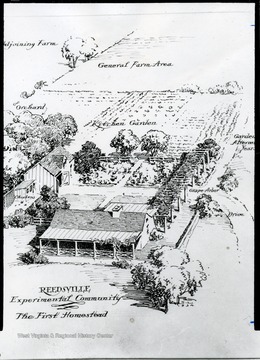 Adjoining Farm
General Farm Area
Orchard
Kitchen Garden
Garden
Grape Arbor
Drive
REEDSVILLE
Experimental Community
The First Homestead
West Virginia & Regional History Center